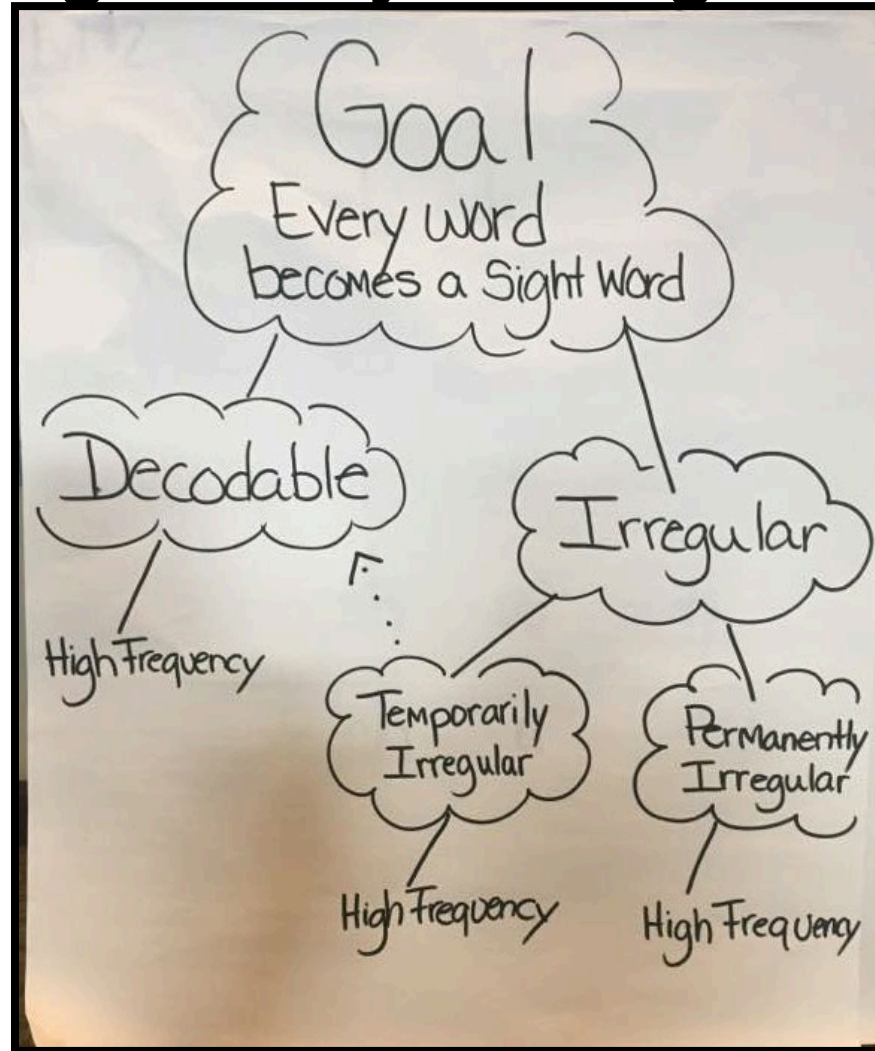 Goal
Every word
becomes a Sight Word
Decodable
Irregular
High Frequency
Temporarily
Irregular
Permanently
Irregular
High Frequency
High Frequency